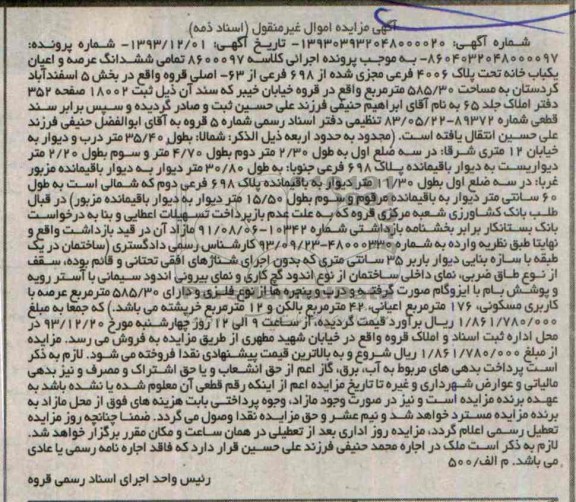 آگهی مزایده اموال غیرمنقول (اسناد ذمه)
شماره آگهی: ۱۳۹۳۰۳۹۳۲۰۴۸۰۰۰۰۲۰- تاریخ آگهی: ۱۳۹۳/۱۲/۰۱- شماره پرونده:
۸۶۰۴۰۳۲۰۴۸۰۰۰۰۹۷- به موجب پرونده اجرائی کلاسه ۸۶۰۰۰۹۷ تمامی ششدانگ عرصه و اعیان
یکباب خانه تحت پلاک ۴۰۰۶ فرعی مجزی شده از ۶۹۸ فرعی از ۶۳- اصلی قروه واقع در بخش ۵ اسفندآباد
کردستان به مساحت ۵۸۵/۳۰ مترمربع واقع در قروه خیابان خیبر که سند آن ذیل ثبت ۱۸۰۰۲ صفحه ۳۵۲
دفتر املاک جلد ۶۵ به نام آقای ابراهیم حنیفی فرزند علی حسین ثبت و صادر گردیده و سپس برابر سند
قطعی شماره ۸۹۳۷۲-۸۳/۰۵/۲۲ تنظیمی دفتر اسناد رسمی شماره ۵ قروه به آقای ابوالفضل حنیفی فرزند
علی حسین انتقال یافته است. (محدود به حدود اربعه ذیل الذکر: شمالا: بطول ۳۵/۴۰ متر درب و دیوار به
خیابان ۱۲ متری شرقا: در سه ضلع اول به طول ۲/۳۰ متر دوم بطول ۴/۷۰ متر و سوم بطول ۲/۲۰ متر
دیواریست به دیوار باقیمانده پلاک ۶۹۸ فرعی جنوبا: به طول ۳۰/۸۰ متر دیوار به دیوار باقیمانده مزبور
غربا: در سه ضلع اول بطول ۱۱/۳۰ متر دیوار به باقیمانده پلاک ۶۹۸ فرعی دوم که شمالی است به طول
۶۰ سانتی متر دیوار به باقیمانده مرقوم و سوم بطول ۱۵/۵۰ متر دیوار به دیوار باقیمانده مزبور) در قبال
طلب بانک کشاورزی شعبه مرکزی قروه که به علت عدم بازپرداخت تسهیلات اعطایی و بنا به درخواست
بانک بستانکار برابر بخشنامه بازداشتی شماره ۱۰۳۴۲-۹۱/۰۸/۰۶ مازاد آن در قید بازداشت واقع و
نهایتا طبق نظریه وارده به شماره ۴۸۰۰۰۳۳۰-۹۳/۰۹/۲۳ کارشناس رسمی دادگستری (ساختمان در یک
طبقه با سازه بنایی دیوار باربر ۳۵ سانتی متری که بدون اجرای شناژهای افقی تحتانی و قائم بوده، سقف
از نوع طاق ضربی، نمای داخلی ساختمان از نوع اندود گچ کاری و نمای بیرونی اندود سیمانی با آستر رویه
و پوشش بام با ایزوگام صورت گرفته و درب و پنجره ها از نوع فلزی و دارای ۵۸۵/۳۰ مترمربع عرصه با
کاربری مسکونی، ۱۷۶ مترمربع اعیانی، ۴۲ مترمربع بالکن و ۱۲ مترمربع خرپشته می باشد.) که جمعا به مبلغ
۱/۸۶۱/۷۸۰/۰۰۰ ریال برآورد قیمت گردیده، از ساعت ۹ الی ۱۲ روز چهارشنبه مورخ ۹۳/۱۲/۲۰ در
محل اداره ثبت اسناد و املاک قروه واقع در خیابان شهید مطهری از طریق مزایده به فروش می رسد. مزایده
از مبلغ ۱/۸۶۱/۷۸۰/۰۰۰ ریال شروع و به بالاترین قیمت پیشنهادی نقدا فروخته می شود. لازم به ذکر
است پرداخت بدهی های مربوط به آب، برق، گاز اعم از حق انشعاب و یا حق اشتراک و مصرف و نیز بدهی
مالیاتی و عوارض شهرداری و غیره تا تاریخ مزایده اعم از اینکه رقم قطعی آن معلوم شده یا نشده باشد به
عهده برنده مزایده است و نیز در صورت وجود مازاد، وجوه پرداختی بابت هزینه های فوق از محل مازاد به
برنده مزایده مسترد خواهد شد و نیم عشر و حق مزایده نقدا وصول می گردد. ضمنا چنانچه روز مزایده
تعطیل رسمی اعلام گردد، مزایده روز اداری بعد از تعطیلی در همان ساعت و مکان مقرر برگزار خواهد شد.
لازم به ذکر است ملک در اجاره محمد حنیفی فرزند علی حسین قرار دارد که فاقد اجاره نامه رسمی یا عادی
می باشد. م الف/۵۰۰
رئیس واحد اجرای اسناد رسمی قروه